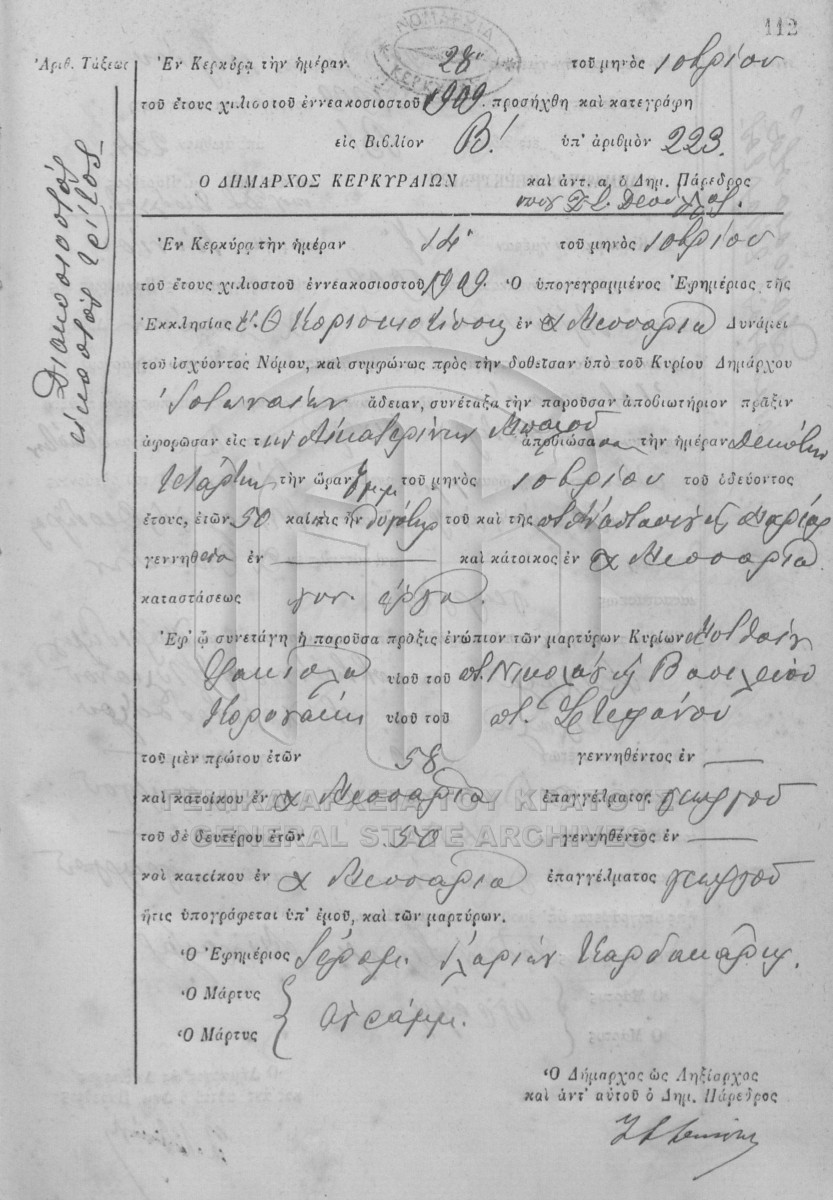 112
ΝΟΜΑΡΧΙΑ
ΚΕΡΚΥΡΑΣ
Ἀριθ. Τάξεως Ἐν Κερκύρᾳ τὴν ἡμέραν 28ην τοῦ μηνὸς 10βρίου
τοῦ ἔτους χιλιοστοῦ ἐννεακοσιοστοῦ 1909. προσήχθη καὶ κατεγράφη
εἰς Βιβλίον Β! ὑπ' ἀριθμὸν 223.
Ο ΔΗΜΑΡΧΟΣ ΚΕΡΚΥΡΑΙΩΝ καὶ ἀντ. α. ὁ Δημ. Πάρεδρος
Διακοσιοστός
εἰκοστός τρίτος
Ἐν Κερκύρᾳ τὴν ἡμέραν 14 τοῦ μηνὸς 10βρίου
τοῦ ἔτους χιλιοστοῦ ἐννεακοσιοστοῦ 1909. Ὁ ὑπογεγραμμένος Ἐφημέριος τῆς
Ἐκκλησίας Υ. Θ. ἐν χ Μεσσαριᾷ Δυνάμει
τοῦ ἰσχύοντος Νόμου, καὶ συμφώνως πρὸς τὴν δοθεῖσαν ὑπὸ τοῦ Κυρίου Δημάρχου
ἄδειαν, συνέταξα τὴν παροῦσαν ἀποβιωτήριον πρᾶξιν
ἀφορῶσαν εἰς τὴν Αἰκατερίνην ἀποβιώσασαν τὴν ἡμέραν Δεκάτην
τετάρτην τὴν ὥραν τοῦ μηνὸς 10βρίου τοῦ ὁδεύοντος
ἔτους, ἐτῶν 50 καὶ ἥτις ἦν θυγάτηρ τοῦ καὶ τῆς ποτ. Ἀναστασίου ἢ Μαρίας
γεννηθεῖσα ἐν — καὶ κάτοικος ἐν χ Μεσσαριᾷ
καταστάσεως γυν. ἔργα.
Ἐφ' ᾧ συνετάγη ἡ παροῦσα πρᾶξις ἐνώπιον τῶν μαρτύρων Κυρίων
υἱοῦ τοῦ ποτ. Νικολάου ἢ Βασιλείου
υἱοῦ τοῦ ποτ. Στεφάνου
τοῦ μὲν πρώτου ἐτῶν 58 γεννηθέντος ἐν —
καὶ κατοίκου ἐν χ Μεσσαριᾷ ἐπαγγέλματος γεωργοῦ
ΓΕΝΙΚΑ ΑΡΧΕΙΑ ΤΟΥ ΚΡΑΤΟΥΣ
τοῦ δὲ δευτέρου ἐτῶν 50 γεννηθέντος ἐν —
GENERAL STATE ARCHIVES
καὶ κατοίκου ἐν χ Μεσσαριᾷ ἐπαγγέλματος γεωργοῦ
ἥτις ὑπογράφεται ὑπ' ἐμοῦ, καὶ τῶν μαρτύρων.
Ὁ Ἐφημέριος Ἱερομ. Ἱλαρίων
Ὁ Μάρτυς
ἀγράμμ.
Ὁ Μάρτυς
Ὁ Δήμαρχος ὡς Ληξίαρχος
καὶ ἀντ' αὐτοῦ ὁ Δημ. Πάρεδρος